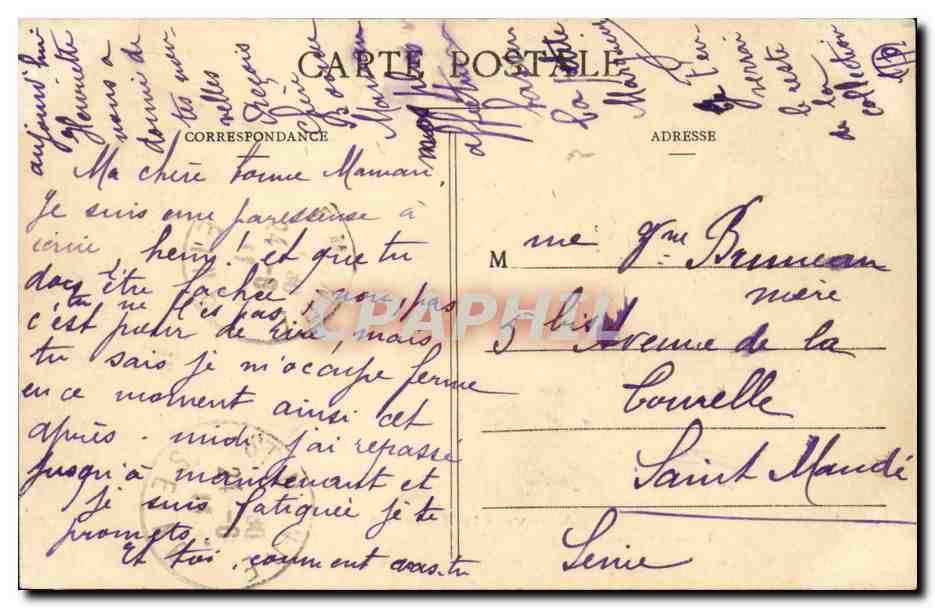 CARTE POSTALE
CORRESPONDANCE
ADRESSE
Ma chère bonne Maman,
Je suis une paresseuse à
écrire, hein! et que tu
dois être fachée, non pas
tu ne l'es pas,
c'est pour de rire, mais
tu sais je m'occupe ferme
en ce moment ainsi cet
après-midi j'ai repassé
jusqu'à maintenant et
je suis fatiguée je te
promets.
Et toi, comment vas-tu
aujourd'hui
Henriette
nous a
donné de
tes nou-
velles
Reçois
chère
Bonne
Maman
affectueux
La petite
Je t'en-
verrai
le reste
de la
collection
M me Vve Bruneau
mère
5 bis Avenue de la
Tourelle
Saint Mandé
Seine
CPAPHIL